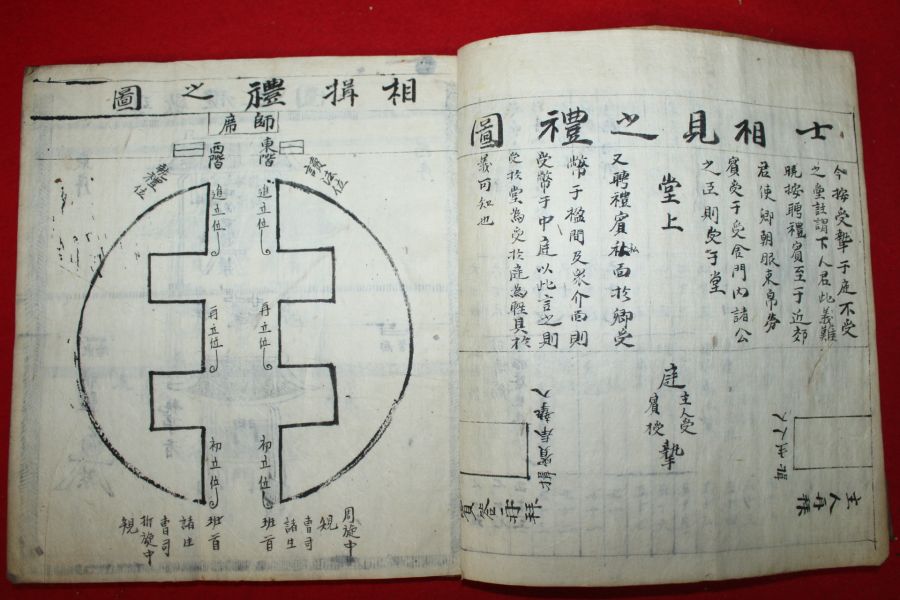 士相見之禮圖
今按受摯于庭不受
之堂註謂下人君此義難
曉按聘禮賓至于近郊
君使卿朝服束帛勞
賓受于受舍門內諸公
之五則受于堂
堂上
又聘禮賓私面於卿受
幣于楹間及衆介面則
受幣于中庭以此言之則
受於堂為受於庭為輕其於
義可知也
主人再拜
主人揖
入
庭
主人受
賓授
摯
揖賓奉摯入
賓答再拜
相揖禮之圖
師席
東階
西階
讀法位
執禮位
進立位
再立位
初立位
進立位
再立位
初立位
周旋中
規
曹司
諸生
班首
班首
諸生
曹司
折旋中
規